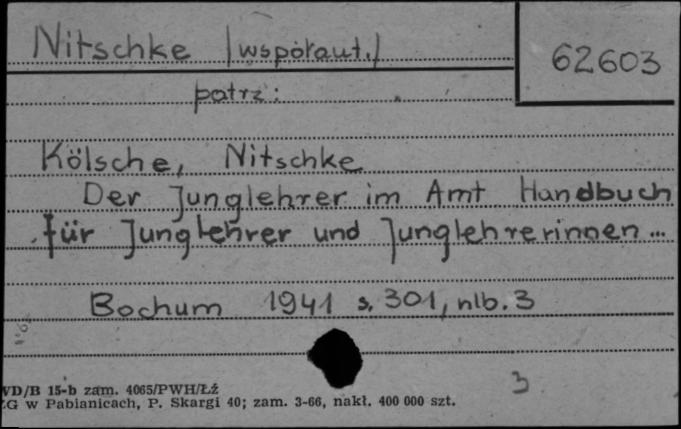 Nitschke /współaut./
62603
patrz:
Kölsche, Nitschke
Der Junglehrer im Amt Handbuch
für Junglehrer und Junglehrerinnen...
Bochum 1941 s. 301, nlb. 3
3
WD/B 15-b zam. 4065/PWH/Łź
ZG w Pabianicach, P. Skargi 40; zam. 3-66, nakł. 400 000 szt.